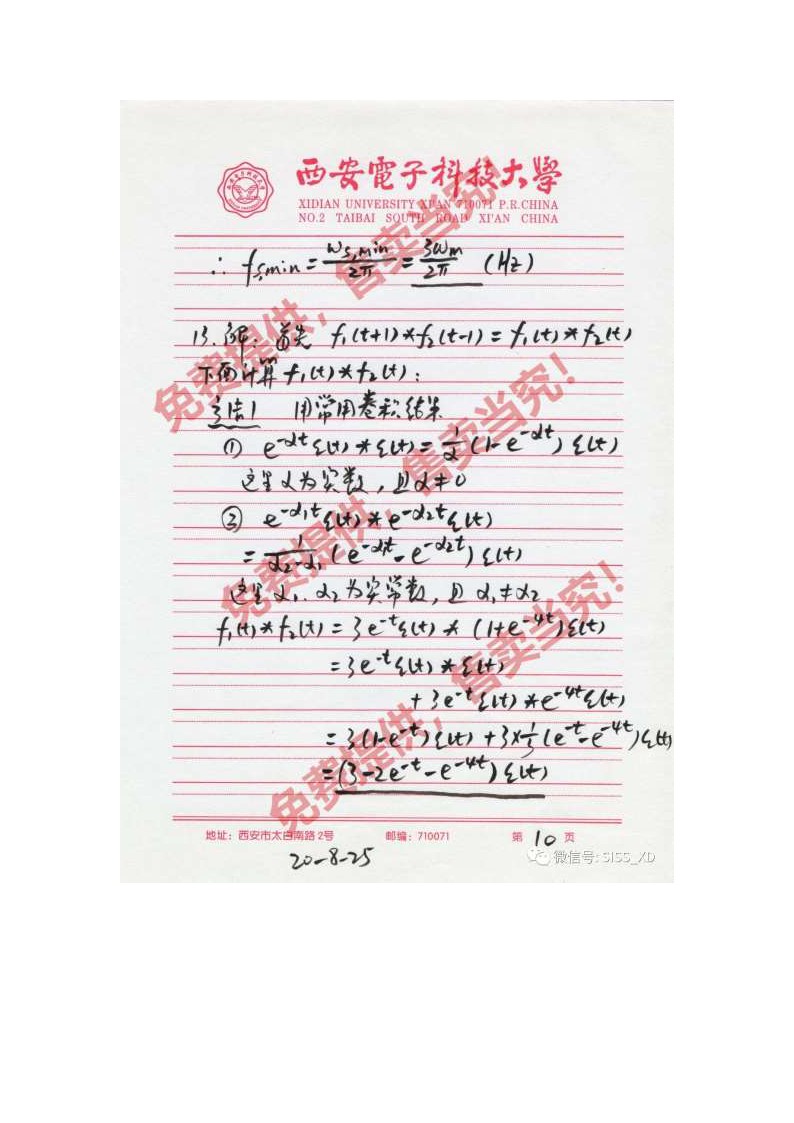 西安電子科技大學
XIDIAN UNIVERSITY XI'AN 710071 P.R.CHINA
NO.2 TAIBAI SOUTH ROAD XI'AN CHINA
∴ fs,min = ωs,min/2π = 3ωm/2π (Hz)
13.解: 首先 f₁(t+1)*f₂(t-1) = f₁(t)*f₂(t)
下面计算 f₁(t)*f₂(t):
方法1 用常用卷积结果
① e^{-αt}ε(t)*ε(t) = 1/α (1-e^{-αt}) ε(t)
这里α为实数, 且α≠0
② e^{-α₁t}ε(t)*e^{-α₂t}ε(t)
= 1/(α₂-α₁) (e^{-α₁t}-e^{-α₂t}) ε(t)
这里α₁、α₂为实常数, 且 α₁≠α₂
f₁(t)*f₂(t) = 3e^{-t}ε(t) * (1+e^{-4t})ε(t)
= 3e^{-t}ε(t)*ε(t)
+ 3e^{-t}ε(t)*e^{-4t}ε(t)
= 3(1-e^{-t})ε(t) + 3×1/3 (e^{-t}-e^{-4t})ε(t)
= (3-2e^{-t}-e^{-4t})ε(t)
免费提供，售卖当究！
免费提供，售卖当究！
免费提供，售卖当究！
地址：西安市太白南路2号 邮编：710071 第 10 页
20-8-25
微信号: SISS_XD